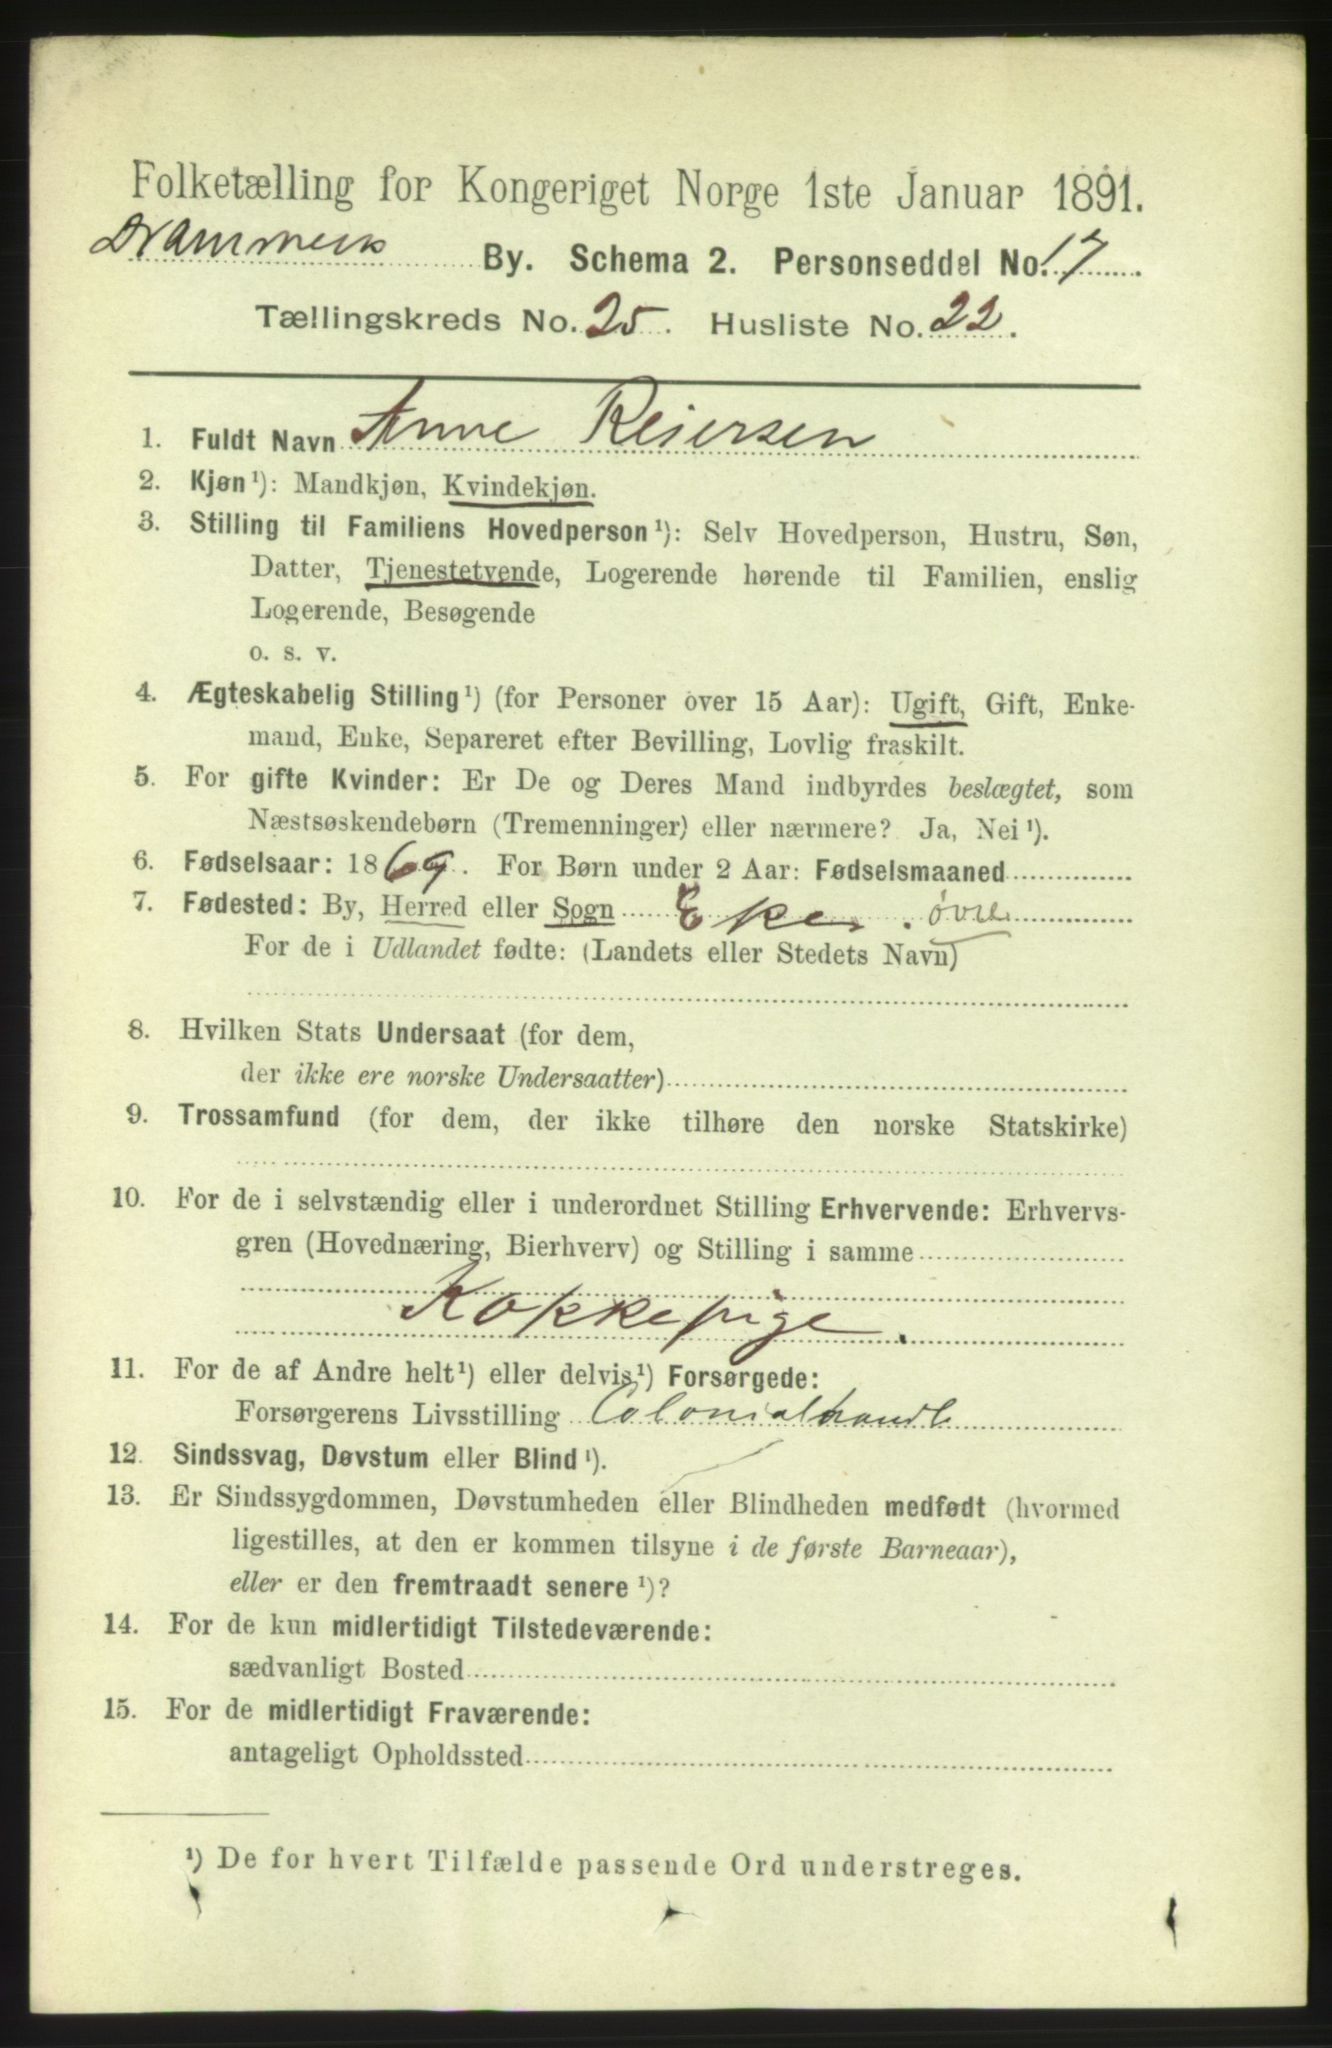 Folketælling for Kongeriget Norge 1ste Januar 1891.
Drammens By. Schema 2. Personseddel No. 17
Tællingskreds No. 25. Husliste No. 22.
1. Fuldt Navn Anne Reiersen
2. Kjøn ¹): Mandkjøn, Kvindekjøn.
3. Stilling til Familiens Hovedperson ¹): Selv Hovedperson, Hustru, Søn,
Datter, Tjenestetyende, Logerende hørende til Familien, enslig
Logerende, Besøgende
o. s. v.
4. Ægteskabelig Stilling ¹) (for Personer over 15 Aar): Ugift, Gift, Enke-
mand, Enke, Separeret efter Bevilling, Lovlig fraskilt.
5. For gifte Kvinder: Er De og Deres Mand indbyrdes beslægtet, som
Næstsøskendebørn (Tremenninger) eller nærmere? Ja, Nei ¹).
6. Fødselsaar: 1869. For Børn under 2 Aar: Fødselsmaaned
7. Fødested: By, Herred eller Sogn Eker. øvre
For de i Udlandet fødte: (Landets eller Stedets Navn)
8. Hvilken Stats Undersaat (for dem,
der ikke ere norske Undersaatter)
9. Trossamfund (for dem, der ikke tilhøre den norske Statskirke)
10. For de i selvstændig eller i underordnet Stilling Erhvervende: Erhvervs-
gren (Hovednæring, Bierhverv) og Stilling i samme
Kokkepige.
11. For de af Andre helt ¹) eller delvis ¹) Forsørgede:
Forsørgerens Livsstilling Colonialhandl
12. Sindssvag, Døvstum eller Blind ¹).
13. Er Sindssygdommen, Døvstumheden eller Blindheden medfødt (hvormed
ligestilles, at den er kommen tilsyne i de første Barneaar),
eller er den fremtraadt senere ¹)?
14. For de kun midlertidigt Tilstedeværende:
sædvanligt Bosted
15. For de midlertidigt Fraværende:
antageligt Opholdssted
¹) De for hvert Tilfælde passende Ord understreges.